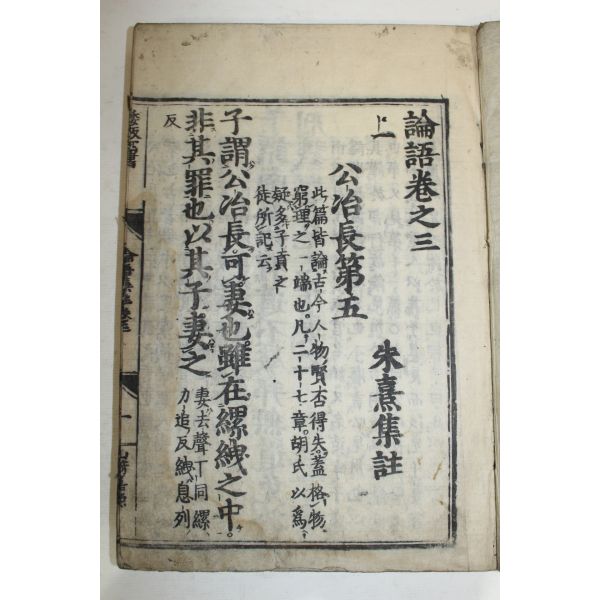 論語卷之三
上
朱熹集註
公冶長第五
此篇皆論古今人物賢否得失蓋格物
窮理之一端也凡二十七章胡氏以爲
疑多子貢之
徒所記云
子謂公冶長可妻也雖在縲絏之中
非其罪也以其子妻之
妻去聲下同縲
力追反絏息列
反